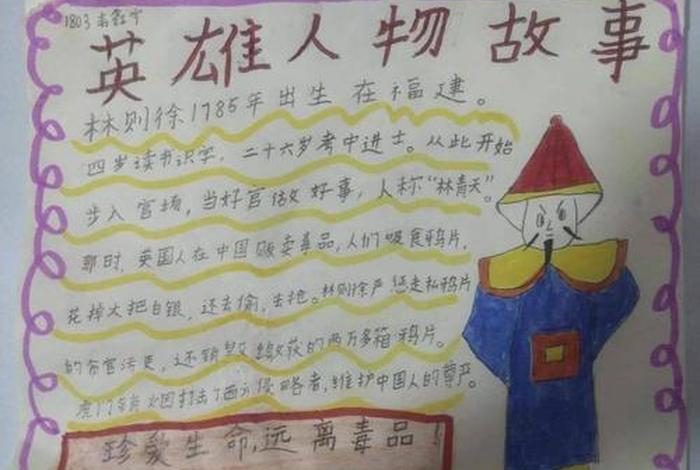 1803
英雄人物故事
林则徐1785年出生在福建。
四岁读书识字，二十六岁考中进士。从此开始
步入官场，当好官做好事，人称“林青天”。
那时，英国人在中国贩卖毒品，人们吸食鸦片，
花掉大把白银，还去偷，去抢。林则徐严惩走私鸦片
的贪官污吏，还销毁缴获的两万多箱鸦片。
虎门销烟打击了西方侵略者，维护中国人的尊严。
珍爱生命，远离毒品！